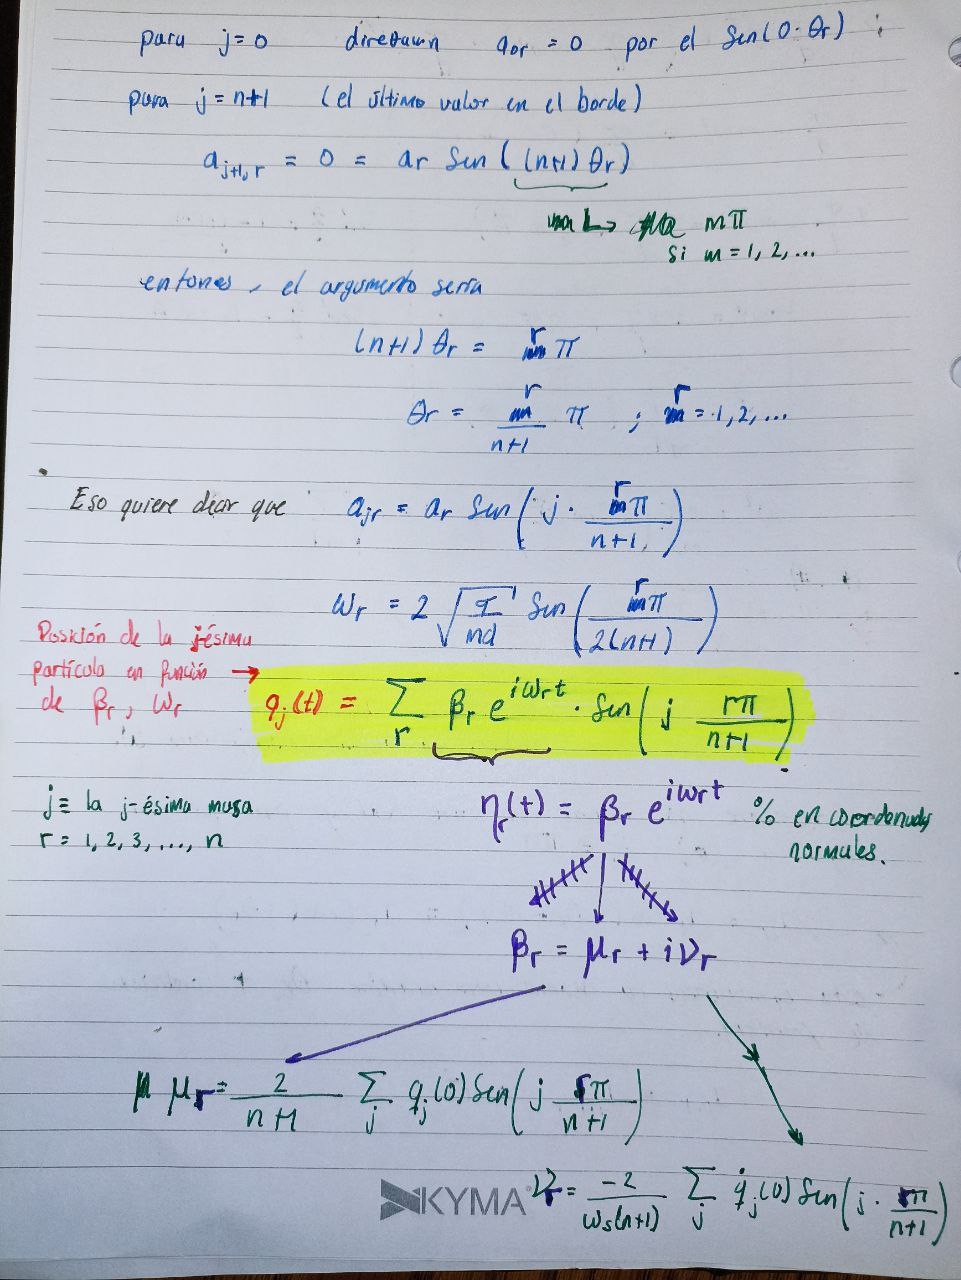 para j=0 direcamn a₀r = 0 por el Sen(0·θr) ;
para j=n+1 (el último valor en el borde)
a_{j+1,r} = 0 = ar Sen((n+1)θr)
mπ
si m=1,2,...
entones, el argumento sería
(n+1)θr = rπ
θr = r/(n+1) π ; r=1,2,...
Eso quiere decir que a_{jr} = ar Sen(j · rπ/(n+1))
ωr = 2 √(τ/md) Sen(rπ/(2(n+1)))
Posición de la j-ésima
partícula en función →
de βr, ωr
q_j(t) = Σ_r βr e^{iωrt} · Sen(j rπ/(n+1))
j ≡ la j-ésima masa
r = 1,2,3,...,n
ηr(t) = βr e^{iωrt} % en coordenadas
normales.
βr = μr + iνr
μr = 2/(n+1) Σ_j q_j(0) Sen(j rπ/(n+1))
KYMA
νr = -2/(ωs(n+1)) Σ_j q̇_j(0) Sen(j · rπ/(n+1))